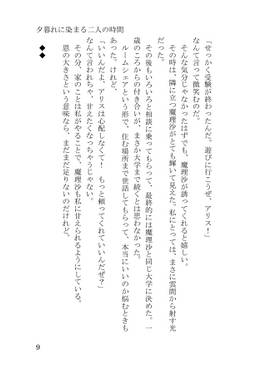 夕暮れに染まる二人の時間
「せっかく受験が終わったんだ、遊びに行こうぜ、アリス！」
なんて言って微笑むのだ。
そんな気分じゃなかったはずでも、魔理沙が誘ってくれると嬉しい。
その時は、隣に立つ魔理沙がとても輝いて見えた。私にとっては、まさに雲間から射す光
だった。
その後もいろいろと相談に乗ってもらって、最終的には魔理沙と同じ大学に決めた。一
歳のころからの付き合いが、まさか大学まで続くとは思わなかった。
ルームシェアという形で、住む場所まで世話してもらって、本当にいいのか悩むときも
あった。けれど、
「いいんだよ、アリスは心配しなくて！　もっと頼ってくれていいんだぜ？」
なんて言われちゃ、甘えたくなっちゃうじゃない。
その分、家のことは私がやることで、魔理沙も私に甘えられるようにしている。
恩の大きさという意味なら、まだまだ足りないのだけれど。
◆◆
9